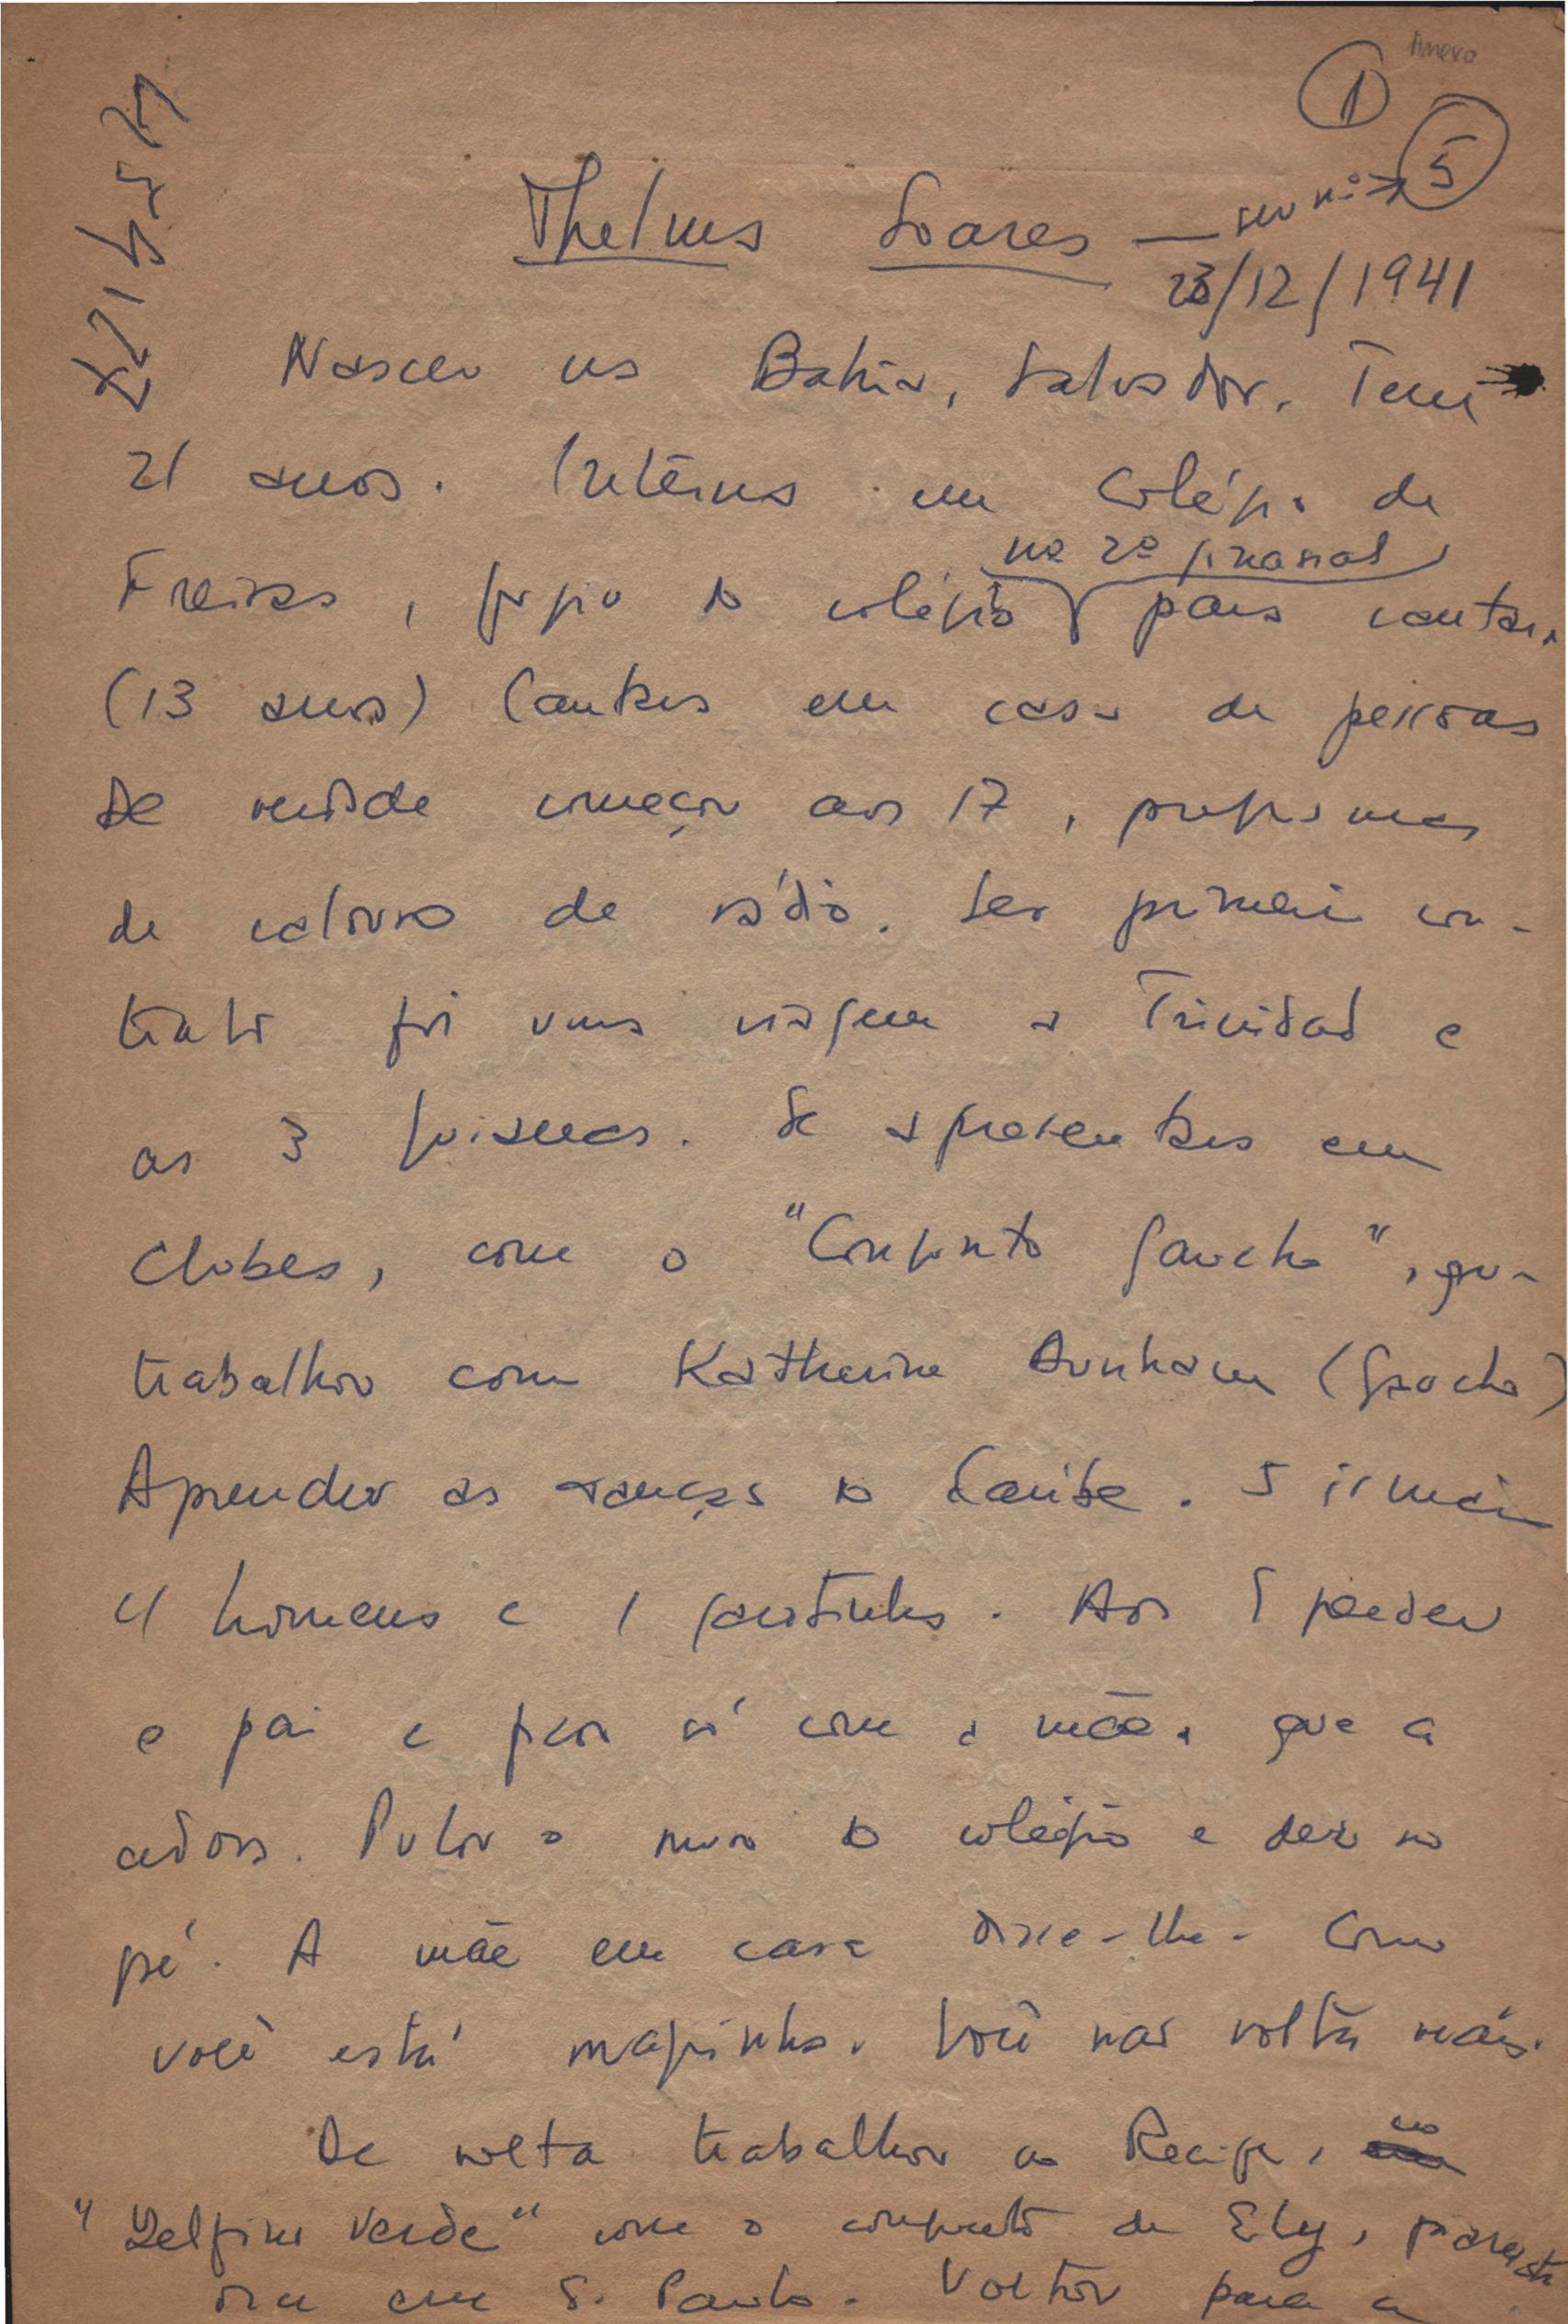 Anexo
1
Thelma Soares — seu nº → 5
23/12/1941
Nasceu na Bahia, Salvador. Tem
21 anos. Interna em colégio de
no 2º ginasial
Freiras, fugiu do colégio para cantar.
(13 anos) Cantava em casa de pessoas
De verdade começou aos 17, programas
de calouro de rádio. Seu primeiro con-
trato foi uma viagem a Trinidad e
as 3 guianas. Se apresentava em
Clubes, com o "Conjunto Gaucho", que
trabalhou com Katherine Dunham (Gaucho)
Aprendeu as danças do Caribe. 5 irmãos
4 homens e 1 garotinha. Aos 5 perdeu
o pai e ficou só com a mãe, que a
adora. Pulou o muro do colégio e deu no
pé. A mãe em casa disse-lhe - Como
você está magrinha. Você não volta mais.
De volta trabalhou no Recife, no
"Delfim Verde" com o conjunto de Ely,
em S. Paulo. Voltou para a